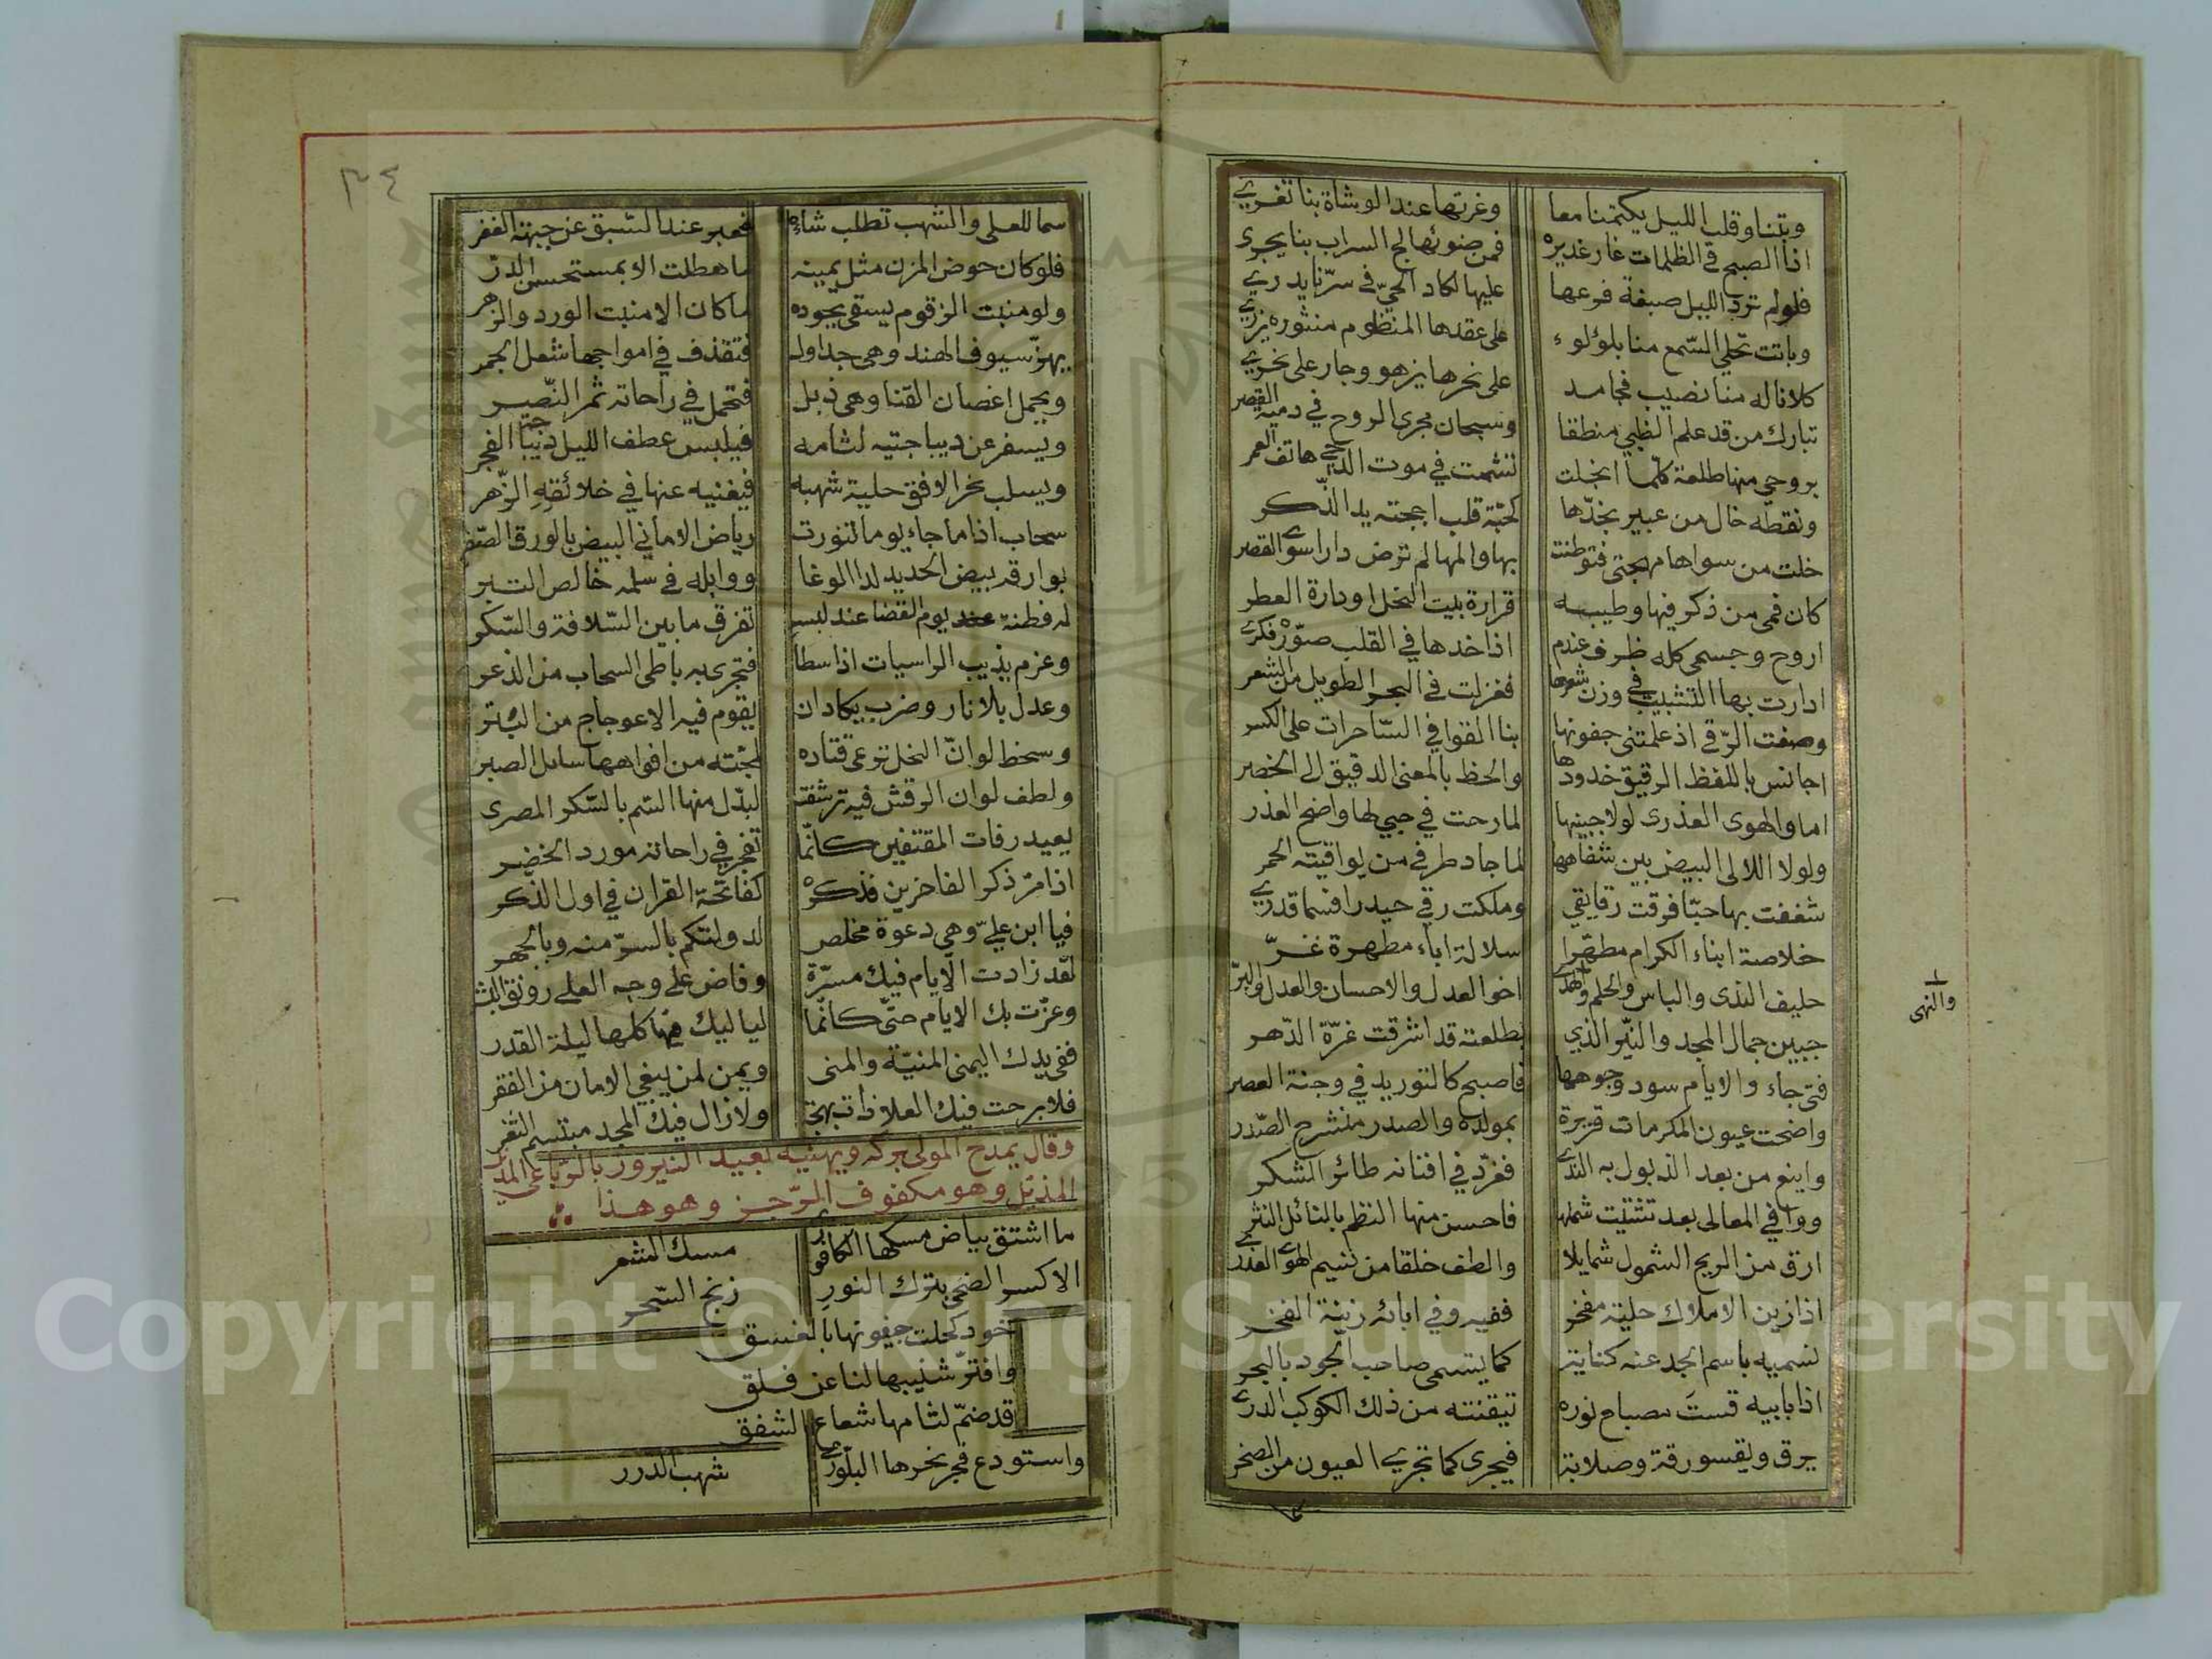 وبتنا وقلب الليل يكتمنا معا وغرتها عند الوشاة بنا تغري
اذا الصبح في الظلمات غار غديره فمن ضوئها لج السراب بنا يجرى
فلولم ترد الليل صبغة فرعها عليها لكاد الحيّ في سرّنا يدري
وباتت تحلي السّمع منا بلؤلوء على عقدها المنظوم منثوره يزري
كلاناله منا نصيب فجامد على نحرها يزهو وجار على نحري
تبارك من قد علم الظبي منطقا وسبحان مجرى الروح في دمية القصر
بروحي منها طلعة كلّما انجلت تشمت في موت الدجى هاتف العمر
ونقطة خال من عبير بخدّها كحبّة قلب اججته يد الذّكر
خلت من سواها مهجتى فتوطنت بها والمها لم ترض دارا سوى القصر
كان فمى من ذكر فيها وطيبه قرارة بيت النحل او دارة العطر
اروح وجسمى كله ظرف عندم اذا خدها في القلب صوّره فكري
ادارت بها التشبيب في وزن شعرها فغزلت في البحر الطويل من الشعر
وصفت الرّقى اذ علمتنى جفونها بنا القوافي السّاحرات على الكسر
اجانس باللفظ الرقيق خدودها والحظ بالمعنى الدقيق الى الخصر
اما والهوى العذرى لولا جبينها لما رحت في حبي لها واضح العذر
ولولا اللالى البيض بين شفاهها لما جاد طرفي من يواقيته الحمر
شغفت بها حبّا فرقت رقايقي وملكت رقي حيدرا فسما قدري
خلاصة ابناء الكرام مطهّرا سلالة اباء مطهرة غرّ
حليف الندى والباس والحلم والنهى اخو العدل والاحسان والعدل والبرّ
والنهى
جبين جمال المجد والنيّر الذي بطلعته قد اشرقت غرّة الدّهر
فتى جاء والايام سود وجوهها فاصبح كالتوريد في وجنة العصر
واضحت عيون المكرمات قريرة بمولده والصدر منشرح الصّدر
واينع من بعد الذبول به الندى فغرّد في افنانه طائر الشكر
ووافي المعالى بعد تشتيت شملها فاحسن منها النظم بالنائل النثر
ارق من الريح الشمول شمايلا والطف خلقا من نسيم الهوى العذري
اذا زين الاملاك حلية مفخر ففيه وفي ابائه زينة الفخر
نسميه باسم الجد عنه كناية كما يتسمى صاحب الجود بالبحر
اذا بابيه قست مصباح نوره تيقنته من ذلك الكوكب الدرى
يرق ويقسو رقة وصلابة فيجرى كما تجرى العيون من الصخر
٣٤
سما للعلى والشهب تطلب شاءه فعبر عند السّبق عن جبهة الغفر
فلو كان حوض المزن مثل يمينه ما هطلت الا بمستحسن الدرّ
ولو منبت الزقوم يسقى بجوده ما كان الا منبت الورد والزهر
يهزّ سيوف الهند وهى جداول فتقذف في امواجها شعل الجمر
ويحمل اغصان القنا وهى ذبل فتحمل في راحاته ثمر النّصر
ويسفر عن ديباجتيه لثامه فيلبس عطف الليل ديباجة الفجر
ويسلب نحر الافق حلية شهبه فيغنيه عنها في خلائقه الزّهر
سحاب اذا ما جاء يوما تنورت رياض الاماني البيض بالورق الصّفر
بوارقه بيض الحديد لدا الوغا ووابله في سلمه خالص التبر
له فطنة يوم القضا عند لبس تفرق مابين السّلافة والسّكر
وعزم يذيب الراسيات اذا سطا فتجرى به باطى السحاب من الذعر
وعدل بلا نار وضرب يكاد ان يقوم فيه الاعوجاج من البتر
وسخط لو انّ النحل ترعى قتاده لمجته من افواهها سايل الصبر
ولطف لو ان الرقش فيه ترشفت لبدّل منها السّم بالسّكر المصرى
يعيد رفات المقتفين كانّما تفجر في راحاته مورد الخضر
اذا مرّ ذكر الفاخرين فذكره كفاتحة القران في اول الذّكر
فيا ابن عليّ وهي دعوة مخلص لدولتكم بالسرّ منه وبالجهر
لقد زادت الايام فيك مسرّة وفاض على وجه العلى رونق البشر
وعزّت بك الايام حتّى كانّما لياليك منها كلها ليلة القدر
ففى يدك اليمنى المنيّة والمنى ويمن لمن يبغي الامان من الفقر
فلا برحت فيك العلا ذات بهجة ولا زال فيك المجد مبتسم الثغر
وقال يمدح المولى بركه ويهنيه بعيد النيروز بالرّباعى
المذيّل وهو مكفوف الرّجز وهو هذا
ما اشتق بياض مسكها الكافور مسك الشعر
الا كسر الضحى بترك النور زنج السّحر
خود كحلت جفونها بالغسق
وافترّ شنيبها لنا عن فلق
قد ضمّ لثامها شعاع الشفق
واستودع فجر نحرها البلّورى شهب الدرر